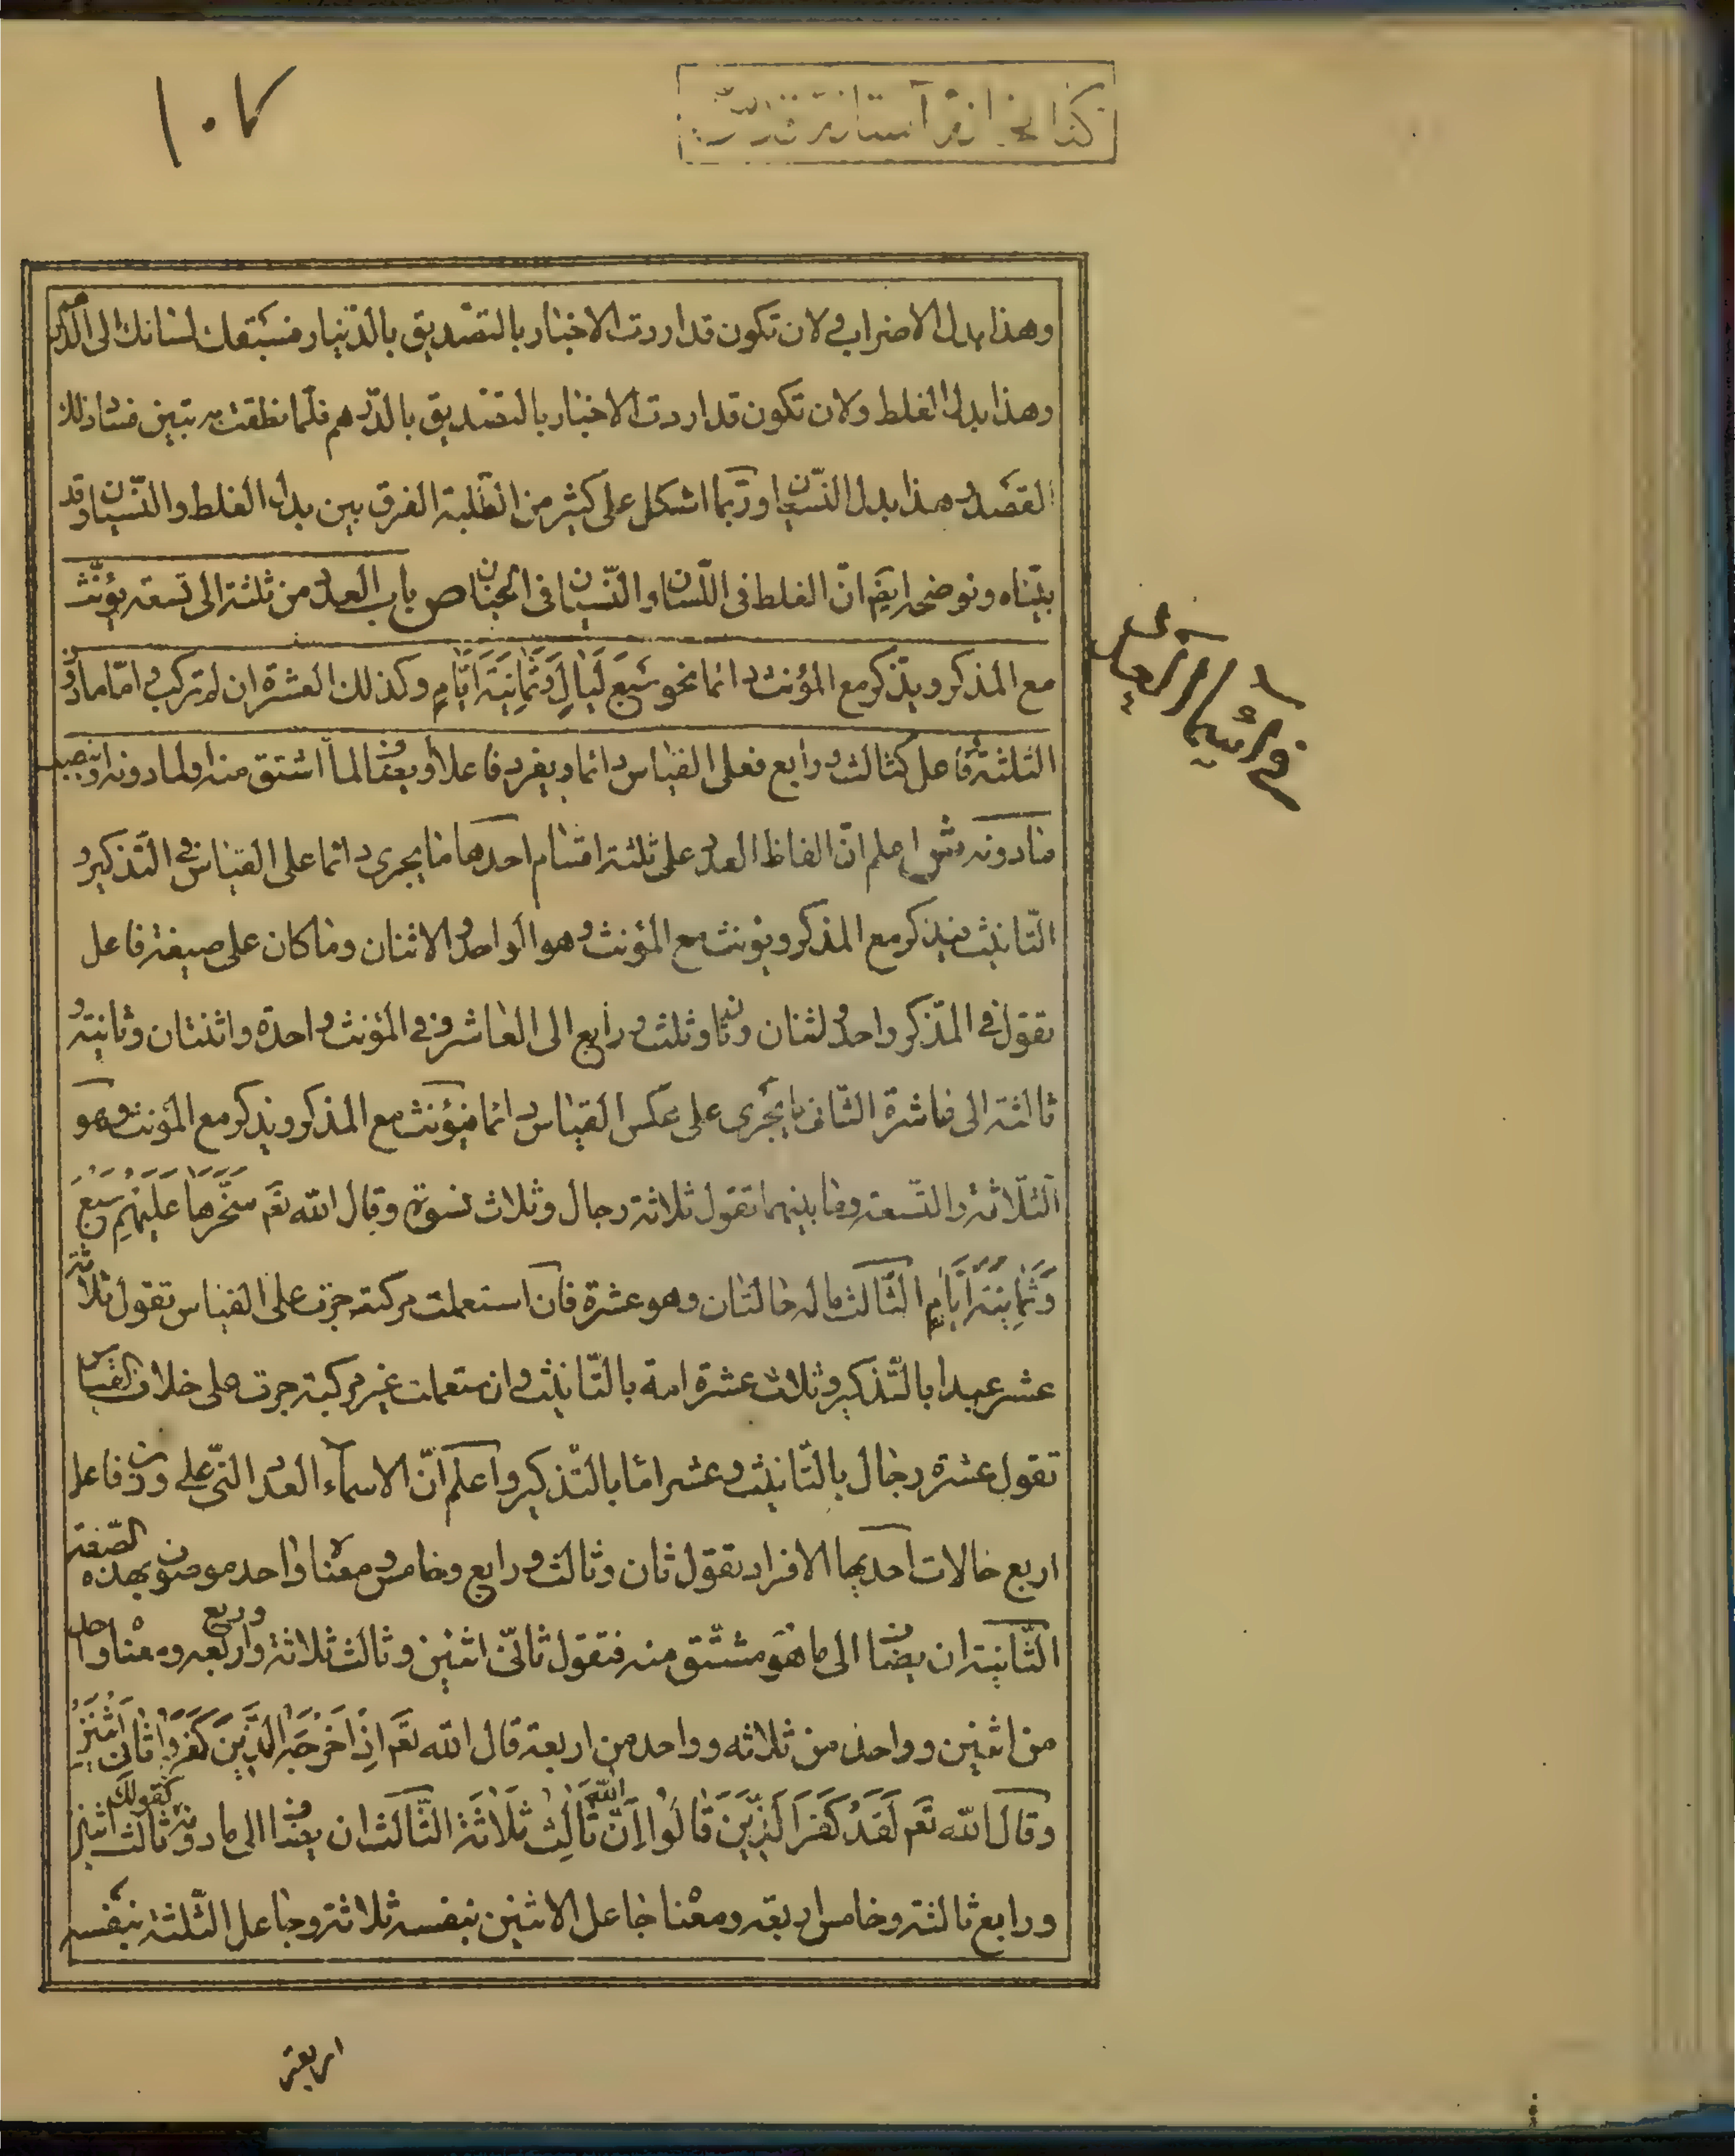 ١٠٧
كتابخانه آستانه قدس
وهذا بدل الاضراب ولان تكون قد اردت الاخبار بالتصديق بالدينار فسبقك لسانك الى الدرهم
وهذا بدل الغلط ولان تكون قد اردت الاخبار بالتصديق بالدرهم فلما نطقت به تبين فساد ذلك
القصد وهذا بدل النسيان وربما اشكل على كثير من الطلبة الفرق بين بدل الغلط والنسيان وقد
بيّناه ونوضحه ايضا انّ الغلط فى اللسان والنّسيان فى الجنان ص باب العدد من ثلثة الى تسعة يؤنّث
مع المذكر ويذكر مع المؤنث دائما نحو سَبْعَ لَيَالٍ وَثَمَانِيَةَ اَيَّامٍ وكذلك العشرة ان لم تركب و امّا ما دون
الثلثة و فاعل كثالث و رابع فعلى القياس دائما و يفرد فاعل او يضاف لما اشتق منه او لما دونه او ينصب
مادونه ش اعلم انّ الفاظ العدد على ثلثة اقسام احدها ما يجرى دائما على القياس فى التذكير و
التّانيث فيذكر مع المذكر ويؤنث مع المؤنث وهو الواحد والاثنان وما كان على صيغة فاعل
تقول فى المذكر واحد واثنان وثان وثلث ورابع الى العاشر وفى المؤنث واحدة واثنتان وثانية و
ثالثة الى عاشرة الثانى ما يجرى على عكس القياس دائما فيؤنث مع المذكر ويذكر مع المؤنث وهو
الثلاثة والتسعة وما بينهما تقول ثلاثة رجال وثلاث نسوة وقال الله تعم سَخَّرَهَا عَلَيْهِمْ سَبْعَ
وَثَمَانِيَةَ اَيَّامٍ الثّالث ما له حالتان وهو عشرة فان استعملت مركبة جرت على القياس تقول ثلاثة
عشر عبدا بالتّذكير وثلاث عشرة امة بالتّانيث وان ستعملت غير مركبة جرت على خلاف القياس
تقول عشرة رجال بالتّانيث وعشر اما بالتّذكير واعلم انّ الاسماء العدد التى على وزن فاعل
اربع حالات احديها الافراد تقول ثان وثالث ورابع وخامس ومعناه واحد موصوف بهذه الصّفة
الثّانية ان يضاف الى ما هو مشتق منه فتقول ثانى اثنين وثالث ثلاثة ورابع واربعه ومعناه واحد
من اثنين وواحد من ثلاثه وواحد من اربعة قال الله تعم اِذْ اَخْرَجَهُ الَّذِينَ كَفَرُوا ثَانِىَ اثْنَيْنِ
وقال الله تعم لَقَدْ كَفَرَ الَّذِينَ قَالُوا اِنَّ اللّٰهَ ثَالِثُ ثَلَاثَةٍ الثّالث ان يضاف الى ما دونه كقولك ثالث اثنين
ورابع ثالثة وخامس اربعة ومعناه جاعل الاثنين بنفسه ثلاثة وجاعل الثلثة بنفسه
اربعة